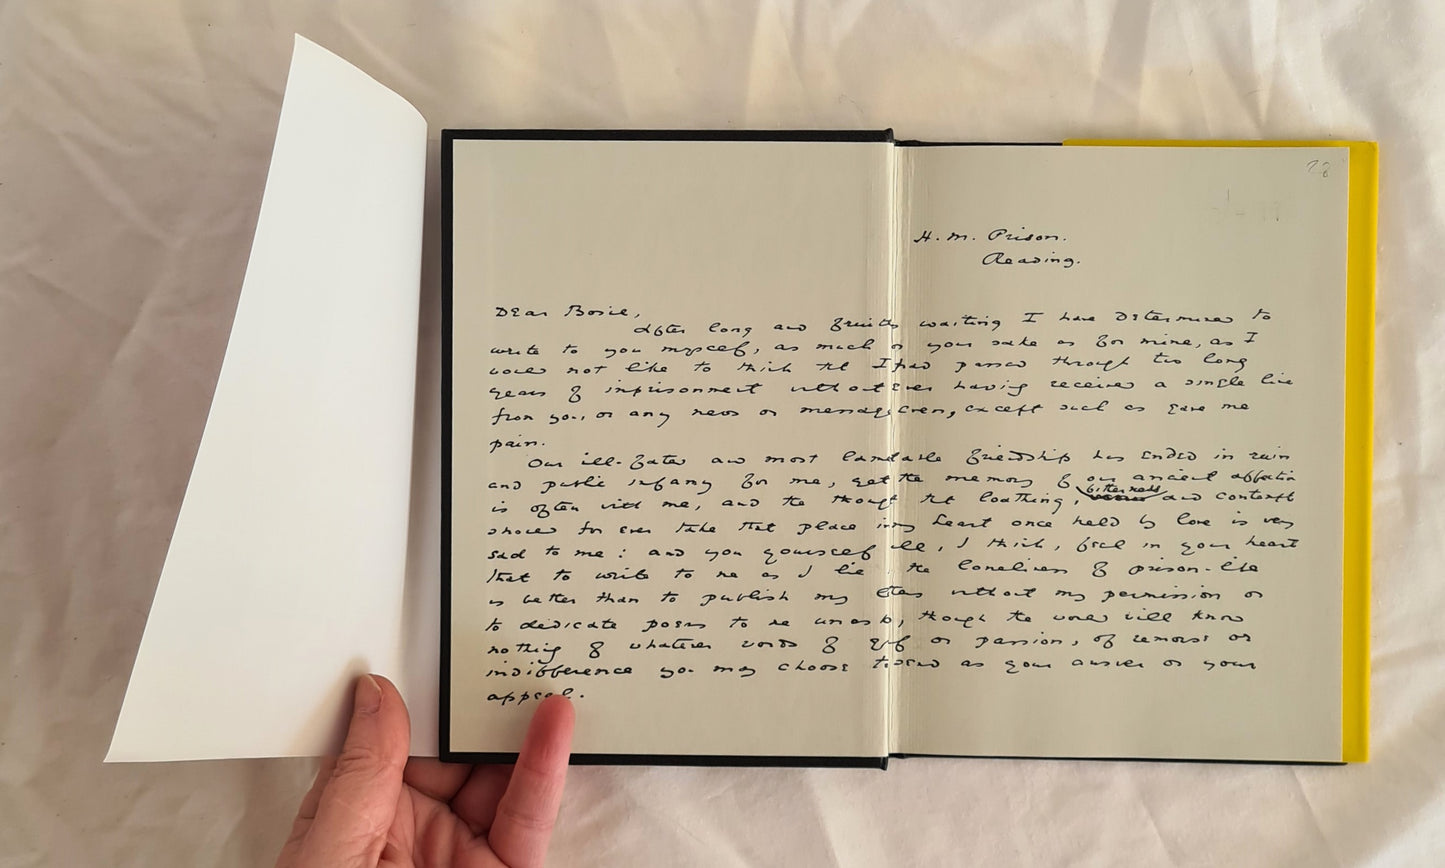 H. M. Prison.
Reading.
Dear Bosie,
After long and fruitless waiting I have determined to
write to you myself, as much for your sake as for mine, as I
would not like to think that I had passed through two long
years of imprisonment without ever having received a single line
from you, or any news or message even, except such as gave me
pain.
Our ill-fated and most lamentable friendship has ended in ruin
and public infamy for me, yet the memory of our ancient affection
is often with me, and the thought that loathing, bitterness and contempt
should for ever take that place in my heart once held by love is very
sad to me: and you yourself will, I think, feel in your heart
that to write to me as I lie in the loneliness of prison-life
is better than to publish my letters without my permission or
to dedicate poems to me unasked, though the world will know
nothing of whatever words of grief or passion, of remorse or
indifference you may choose to send as your answer or your
appeal.